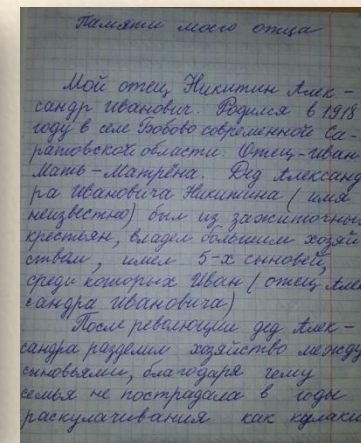 Памяти моего отца
Мой отец Никитин Алек-
сандр Иванович. Родился в 1918
году в сел Бобово современной Са-
ратовской области. Отец-Иван
Мать-Матрёна. Дед Александ
ра Ивановича Никитина (имя
неизвестно) был из зажиточных
крестьян, владел большим хозяй
ством, имел 5-х сыновей,
среди которых Иван (отец Алек
сандра Ивановича)
После революции дед Алек-
сандра разделил хозяйство между
сыновьями, благодаря чему
семья не пострадала в годы
раскулачивания как кулаки